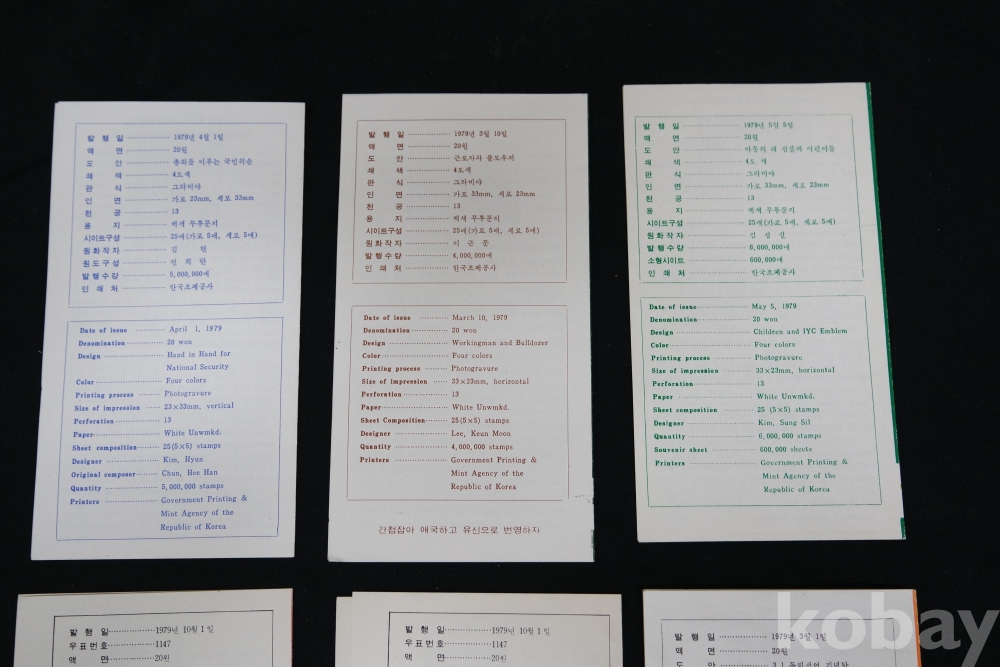 발 행 일 ············ 1979년 4월 1일
액 면 ············ 20원
도 안 ············ 총화를 이루는 국민의손
쇄 색 ············ 4도색
판 식 ············ 그라비아
인 면 ············ 가로 23mm, 세로 33mm
천 공 ············ 13
용 지 ············ 백색 무투문지
시이트구성 ············ 25매(가로 5매, 세로 5매)
원화작자 ············ 김 현
원도구성 ············ 전 희 한
발행수량 ············ 5,000,000매
인 쇄 처 ············ 한국조폐공사
Date of issue ············ April 1, 1979
Denomination ············ 20 won
Design ············ Hand in Hand for
National Security
Color ············ Four colors
Printing process ············ Photogravure
Size of impression ············ 23×33mm, vertical
Perforation ············ 13
Paper ············ White Unwmkd.
Sheet composition ············ 25(5×5) stamps
Designer ············ Kim, Hyun
Original composer ············ Chun, Hee Han
Quantity ············ 5,000,000 stamps
Printers ············ Government Printing &
Mint Agency of the
Republic of Korea
발 행 일 ············ 1979년 3월 10일
액 면 ············ 20원
도 안 ············ 근로자와 불도우저
쇄 색 ············ 4도색
판 식 ············ 그라비아
인 면 ············ 가로 33mm, 세로 23mm
천 공 ············ 13
용 지 ············ 백색 무투문지
시이트구성 ············ 25매(가로 5매, 세로 5매)
원화작자 ············ 이 근 문
발행수량 ············ 4,000,000매
인 쇄 처 ············ 한국조폐공사
Date of issue ············ March 10, 1979
Denomination ············ 20 won
Design ············ Workingman and Bulldozer
Color ············ Four colors
Printing process ············ Photogravure
Size of impression ············ 33×23mm, horizontal
Perforation ············ 13
Paper ············ White Unwmkd.
Sheet Composition ············ 25(5×5) stamps
Designer ············ Lee, Keun Moon
Quantity ············ 4,000,000 stamps
Printers ············ Government Printing &
Mint Agency of the
Republic of Korea
간첩잡아 애국하고 유신으로 번영하자
발 행 일 ············ 1979년 5월 5일
액 면 ············ 20원
도 안 ············ 아동의 해 심볼과 어린이들
쇄 색 ············ 4도 색
판 식 ············ 그라비아
인 면 ············ 가로 33mm, 세로 23mm
천 공 ············ 13
용 지 ············ 백색 무투문지
시이트구성 ············ 25매(가로 5매, 세로 5매)
원화작자 ············ 김 성 실
발행수량 ············ 6,000,000매
소형시이트 ············ 600,000매
인 쇄 처 ············ 한국조폐공사
Date of issue ············ May 5, 1979
Denomination ············ 20 won
Design ············ Children and IYC Emblem
Color ············ Four colors
Printing process ············ Photogravure
Size of impression ············ 33×23mm, horizontal
Perforation ············ 13
Paper ············ White Unwmkd.
Sheet composition ············ 25 (5×5) stamps
Designer ············ Kim, Sung Sil
Quantity ············ 6,000,000 stamps
Souvenir sheet ············ 600,000 sheets
Printers ············ Government Printing &
Mint Agency of the
Republic of Korea
발 행 일 ············ 1979년 10월 1일
우표번호 ············ 1147
액 면 ············ 20원
발 행 일 ············ 1979년 10월 1일
우표번호 ············ 1147
액 면 ············ 20원
발 행 일 ············ 1979년 3월 1일
액 면 ············ 20원
도 안 ············ 3.1 독립선언 기념탑
kobay